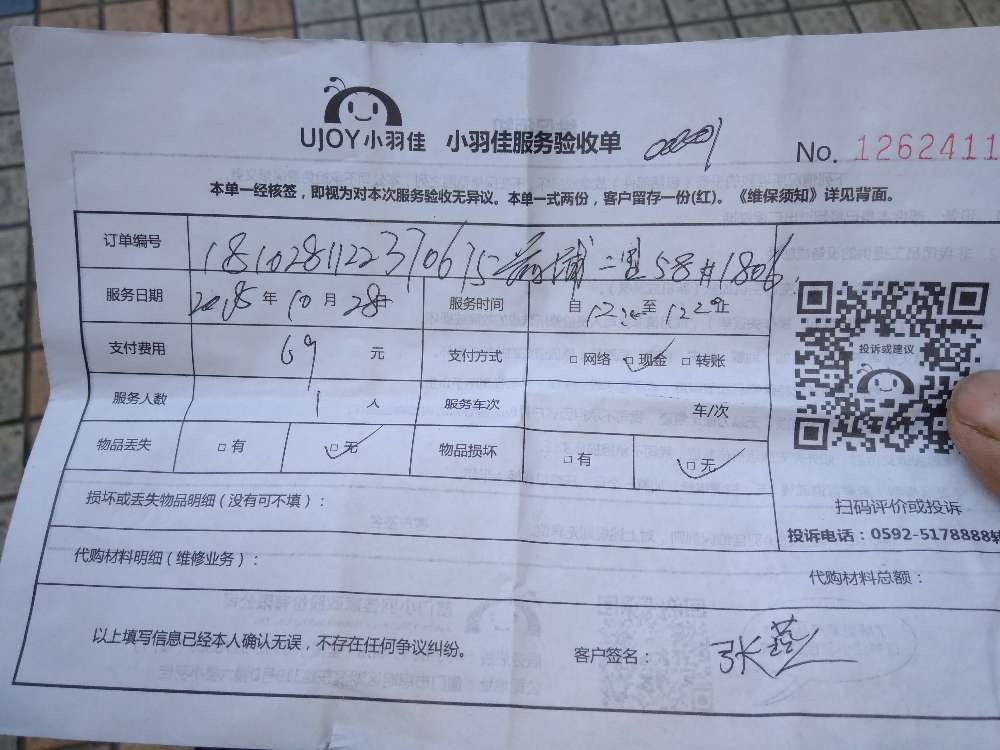 UJOY小羽佳 小羽佳服务验收单
No. 1262411
本单一经核签，即视为对本次服务验收无异议。本单一式两份，客户留存一份(红)。《维保须知》详见背面。
订单编号 181028112237067 二里58#1806
服务日期 2018年10月28日 服务时间 自12 至12
支付费用 69 元 支付方式 □网络 ☑现金 □转账
服务人数 1 人 服务车次 车/次
物品丢失 □有 ☑无 物品损坏 □有 ☑无
损坏或丢失物品明细（没有可不填）：
代购材料明细（维修业务）：
投诉或建议
扫码评价或投诉
投诉电话：0592-5178888转
代购材料总额：
以上填写信息已经本人确认无误，不存在任何争议纠纷。 客户签名：